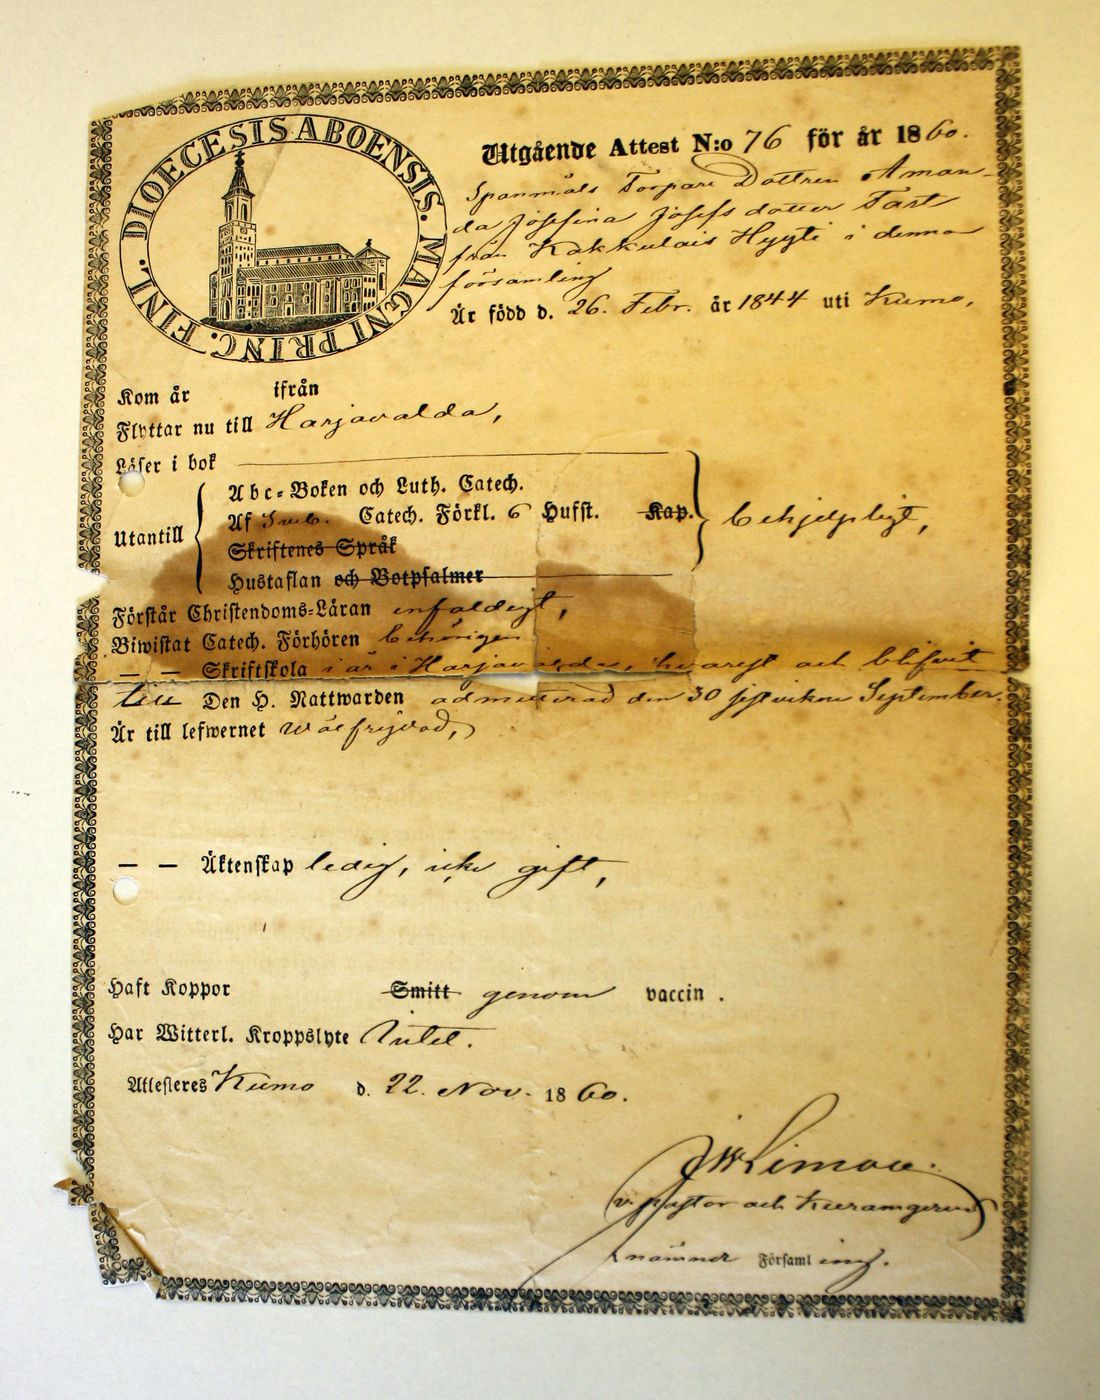 DIOECESIS ABOENSIS. MAGNI PRINC. FINL.
Utgående Attest N:o 76 för år 1860.
Spanmåls Torpare Dottren Aman-
da Josefina Josefsdotter Tart
från Kakkulais Hyyti i denna
församling
Är född d. 26. Febr. år 1844 uti Kumo,
Kom år ifrån
Flyttar nu till Harjavalda,
Läser i bok
Utantill
Abc-Boken och Luth. Catech.
Af Sveb. Catech. Förkl. 6 Hufst. Kap. behjelpligt,
Skriftenes Språk
Hustaflan och Botpsalmer
Förstår Christendoms-Läran enfaldigt,
Biwistat Catech. Förhören behörigen
— — Skriftskola i år i Harjavalda, hvarest och blifvit
till Den H. Nattwarden admitterad den 30 sistvikne September.
Är till lefwernet wälfrejdad,
— — Äktenskap ledig, icke gift,
Haft Koppor Smitt genom vaccin.
Har Witterl. Kroppslyte Intet.
Attesteres Kumo d. 22. Nov. 1860.
v. pastor och
nämnde Församling.